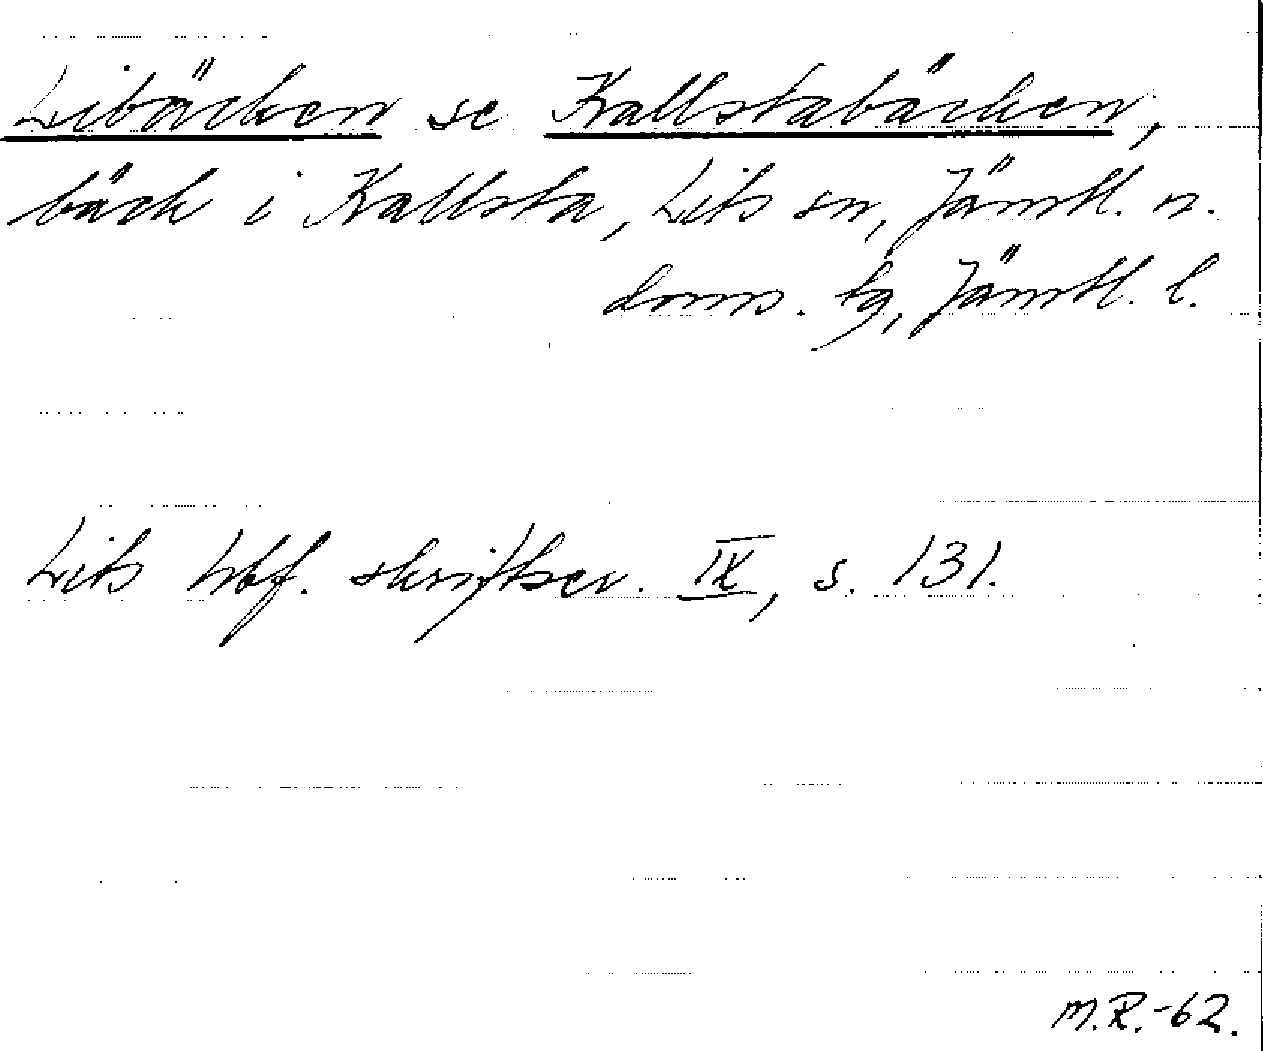 Libäcken se Kallstabäcken,
bäck i Kallsta, Lits sn, Jämtl. n.
doms. tg, Jämtl. l.
Lits hbf. skriftser. IX, s. 131.
M.R.-62.